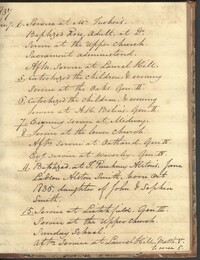 1837
6. Service at Mr Tucker's.
Baptized Rosy, Adult, at Do.
Service at the Upper Church
Sacrament administered.
Aft. Service at Laurel Hill.
5. Catechized the children & evening
Service at the Oaks. Gen. th
6. Catechized the children & evening
Service at Mr Belin's. Gen. th
7. Evening Service at Midway.
8. Service at the lower Church
Aft. Service at Oatland. Gen. th
Eve. service at Waverley. Gen. th
Alston, Jane
Alston Smith, born Oct
1836, daughter of John & Sophia
Smith.
13. Service at Litchfield. Gen. th
Service at the Upper Church.
Sunday School.
Aft. Service at Laurel Hill. Matth. 5.